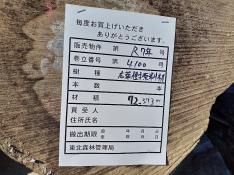 毎度お買上げいただき
ありがとうございます。
販売物件 第 R7年 号
巻立番号 第 4100 号
樹種
本数 本
材積 72.373 m³
買受人
住所氏名
搬出期限 年 月 日
東北森林管理局